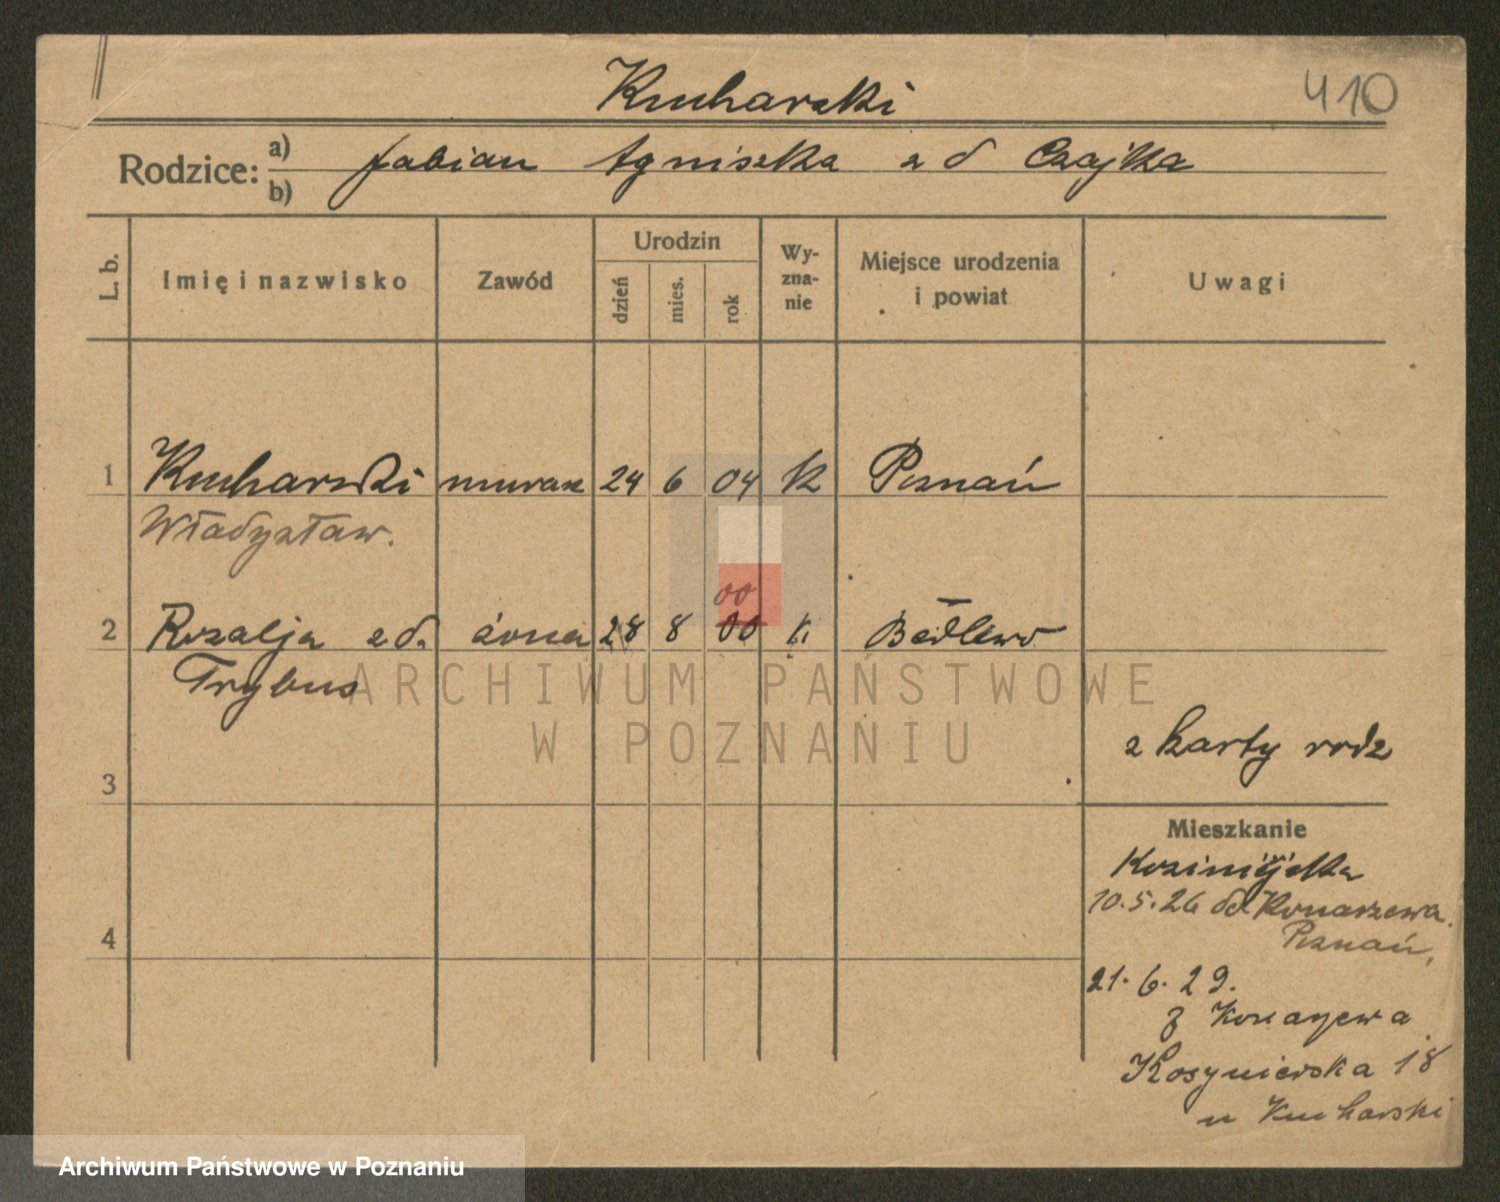 410
Kucharski
Rodzice: a) b) Fabian Agniszka z d Czajka
L. b. Imię i nazwisko Zawód Urodzin dzień mies. rok Wy-zna-nie Miejsce urodzenia i powiat Uwagi
1 Kucharski murarz 24 6 04 K Poznań
Władysław.
00
2 Rozalja z d. żona 28 8 00 k Będlewo
Trybus
ARCHIWUM PAŃSTWOWE
W POZNANIU
z karty rodz
3
Mieszkanie
10.5.26 do Konarzewa
Poznań,
4
21. 6. 29.
z Konarzewa
Kosynierska 18
u Kucharski
Archiwum Państwowe w Poznaniu